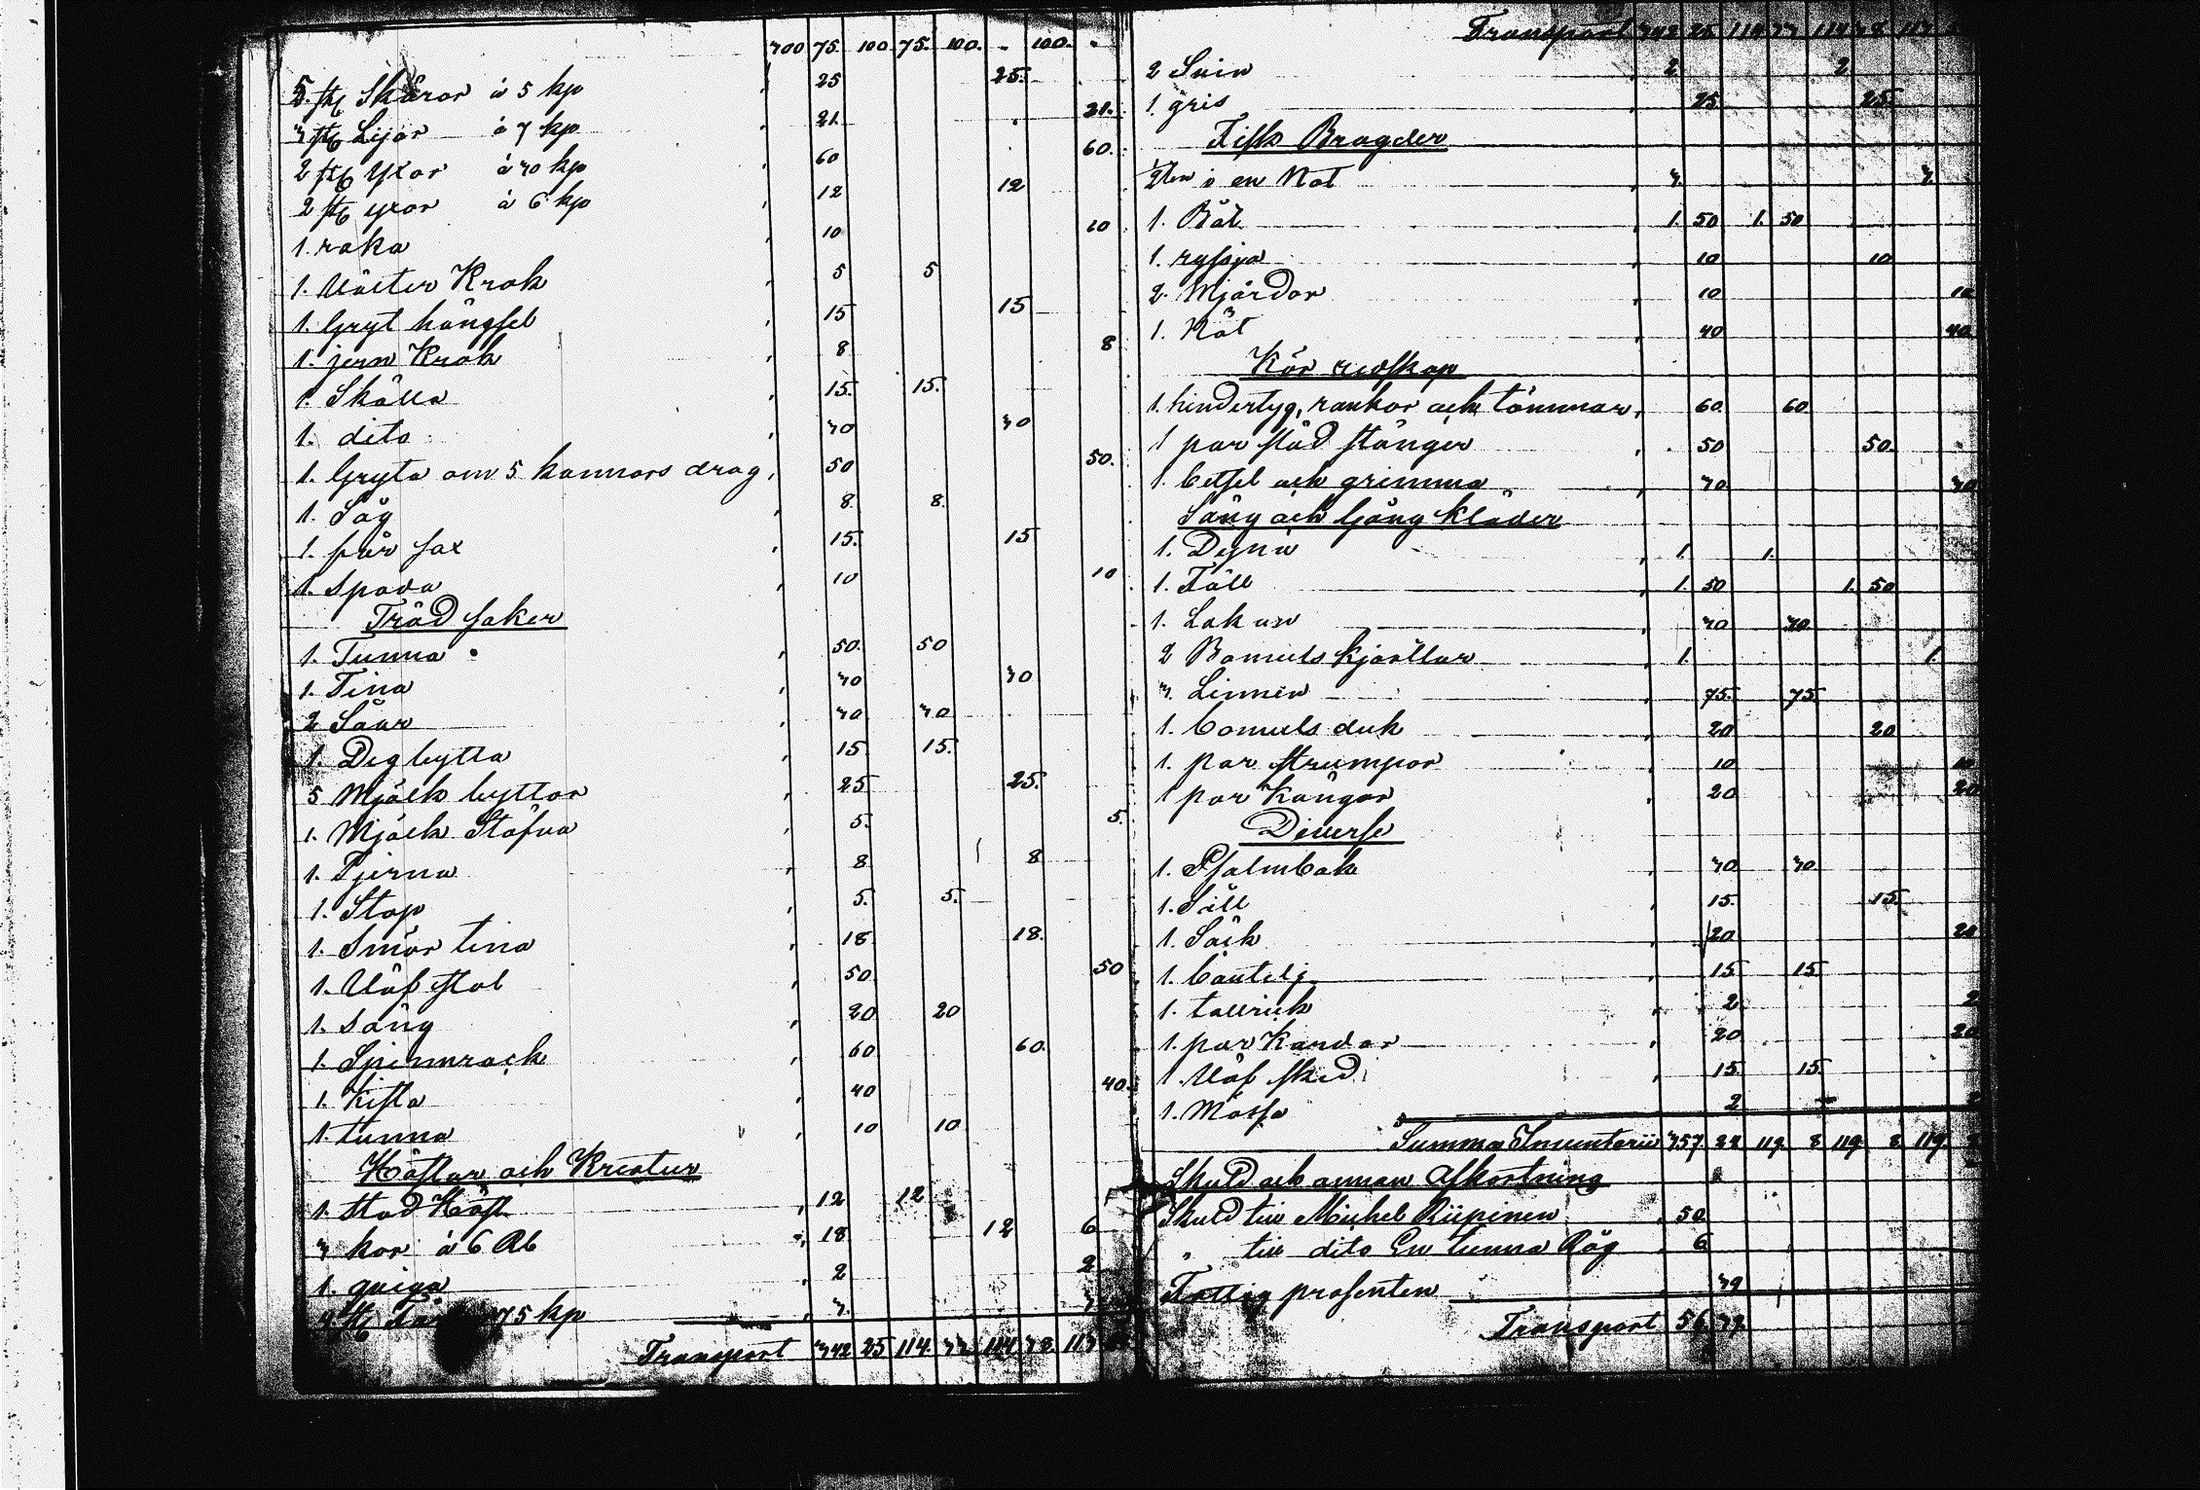 300 75. 100. 75. 100. - 100. -
5. st Skäror à 5 kp , 25 25.
3 st Lijor à 7 kp , 21. 21.
2 st Yxor à 30 kp , 60 60.
2 st yxor à 6 kp , 12 12
1. raka , 10 10
1. Uäster Krok , 5 5
1. Gryt hängsel , 15 15
1. jern Krok , 8 8
1. Skålla , 15. 15.
1. dito , 30 30
1. Gryta om 5 kannors drag , 50 50.
1. Såg , 8. 8.
1. får sax , 15. 15
1. Spada , 10 10
Träd saker
1. Tunna , 50. 50
1. Tina , 30 30
2 Såar , 30. 30
1. Deg bytta , 15 15.
5 Mjölk byttor , 25 25.
1. Mjölk Stäfva , 5. 5.
1. Tjerna , 8 8
1. Stop , 5. 5.
1. Smör tina , 18 18.
1. Uäf stol , 50. 50
1. Säng , 20 20
1. Spinnrock , 60 60.
1. Kista , 40 40.
1. tunna , 10 10
Hästar och Kreatur
1. Stod Häst , 12 12
3 kor à 6 Rb , 18 12 6
1. quiga , 2 2
4 st 75 kp , 3. 3
Transport 342 25 114. 33 114 38 113
Transport 342 25 114 33 114 38 113
2 Svin , 2 2
1. gris , 25 25.
Fisk Bragder
1/2ten i en Not , 3. 3.
1. Båt , 1. 50 1. 50
1. ryssja , 10 10
2. Mjärdor , 10 10
1. Nät , 40 40
Kör redskap
1. hindertyg, rankor och tömmar , 60. 60
1 par städ stänger , 50 50.
1. betsel och grimma , 30 30
Säng och Gång Kläder
1. Dyna , 1. 1.
1. Fäll , 1. 50 1. 50
1. Lakan , 30 30
2 Bomuls kjortlar , 1. 1.
3. Linnen , 75. 75
1. bomuls duk , 20 20
1. par strumpor , 10 10
1 par Kängor , 20 20
Diverse
1. Psalmbok , 30 30
1. Såll , 15. 15.
1. Säck , 20 20
1. boutelj , 15 15
1. tallrick , 2 2
1. par Kardor , 20 20
1. Uäf sked , 15. 15.
1. Mössa , 2
Summa Inventarii 357. 24 119 8 119. 8. 119.
Skuld och annan Afkortning
Skuld till Michel Riipinen , 50
„ till dito En tunna Råg , 6
Fattig prosenten 39
Transport 56 39.